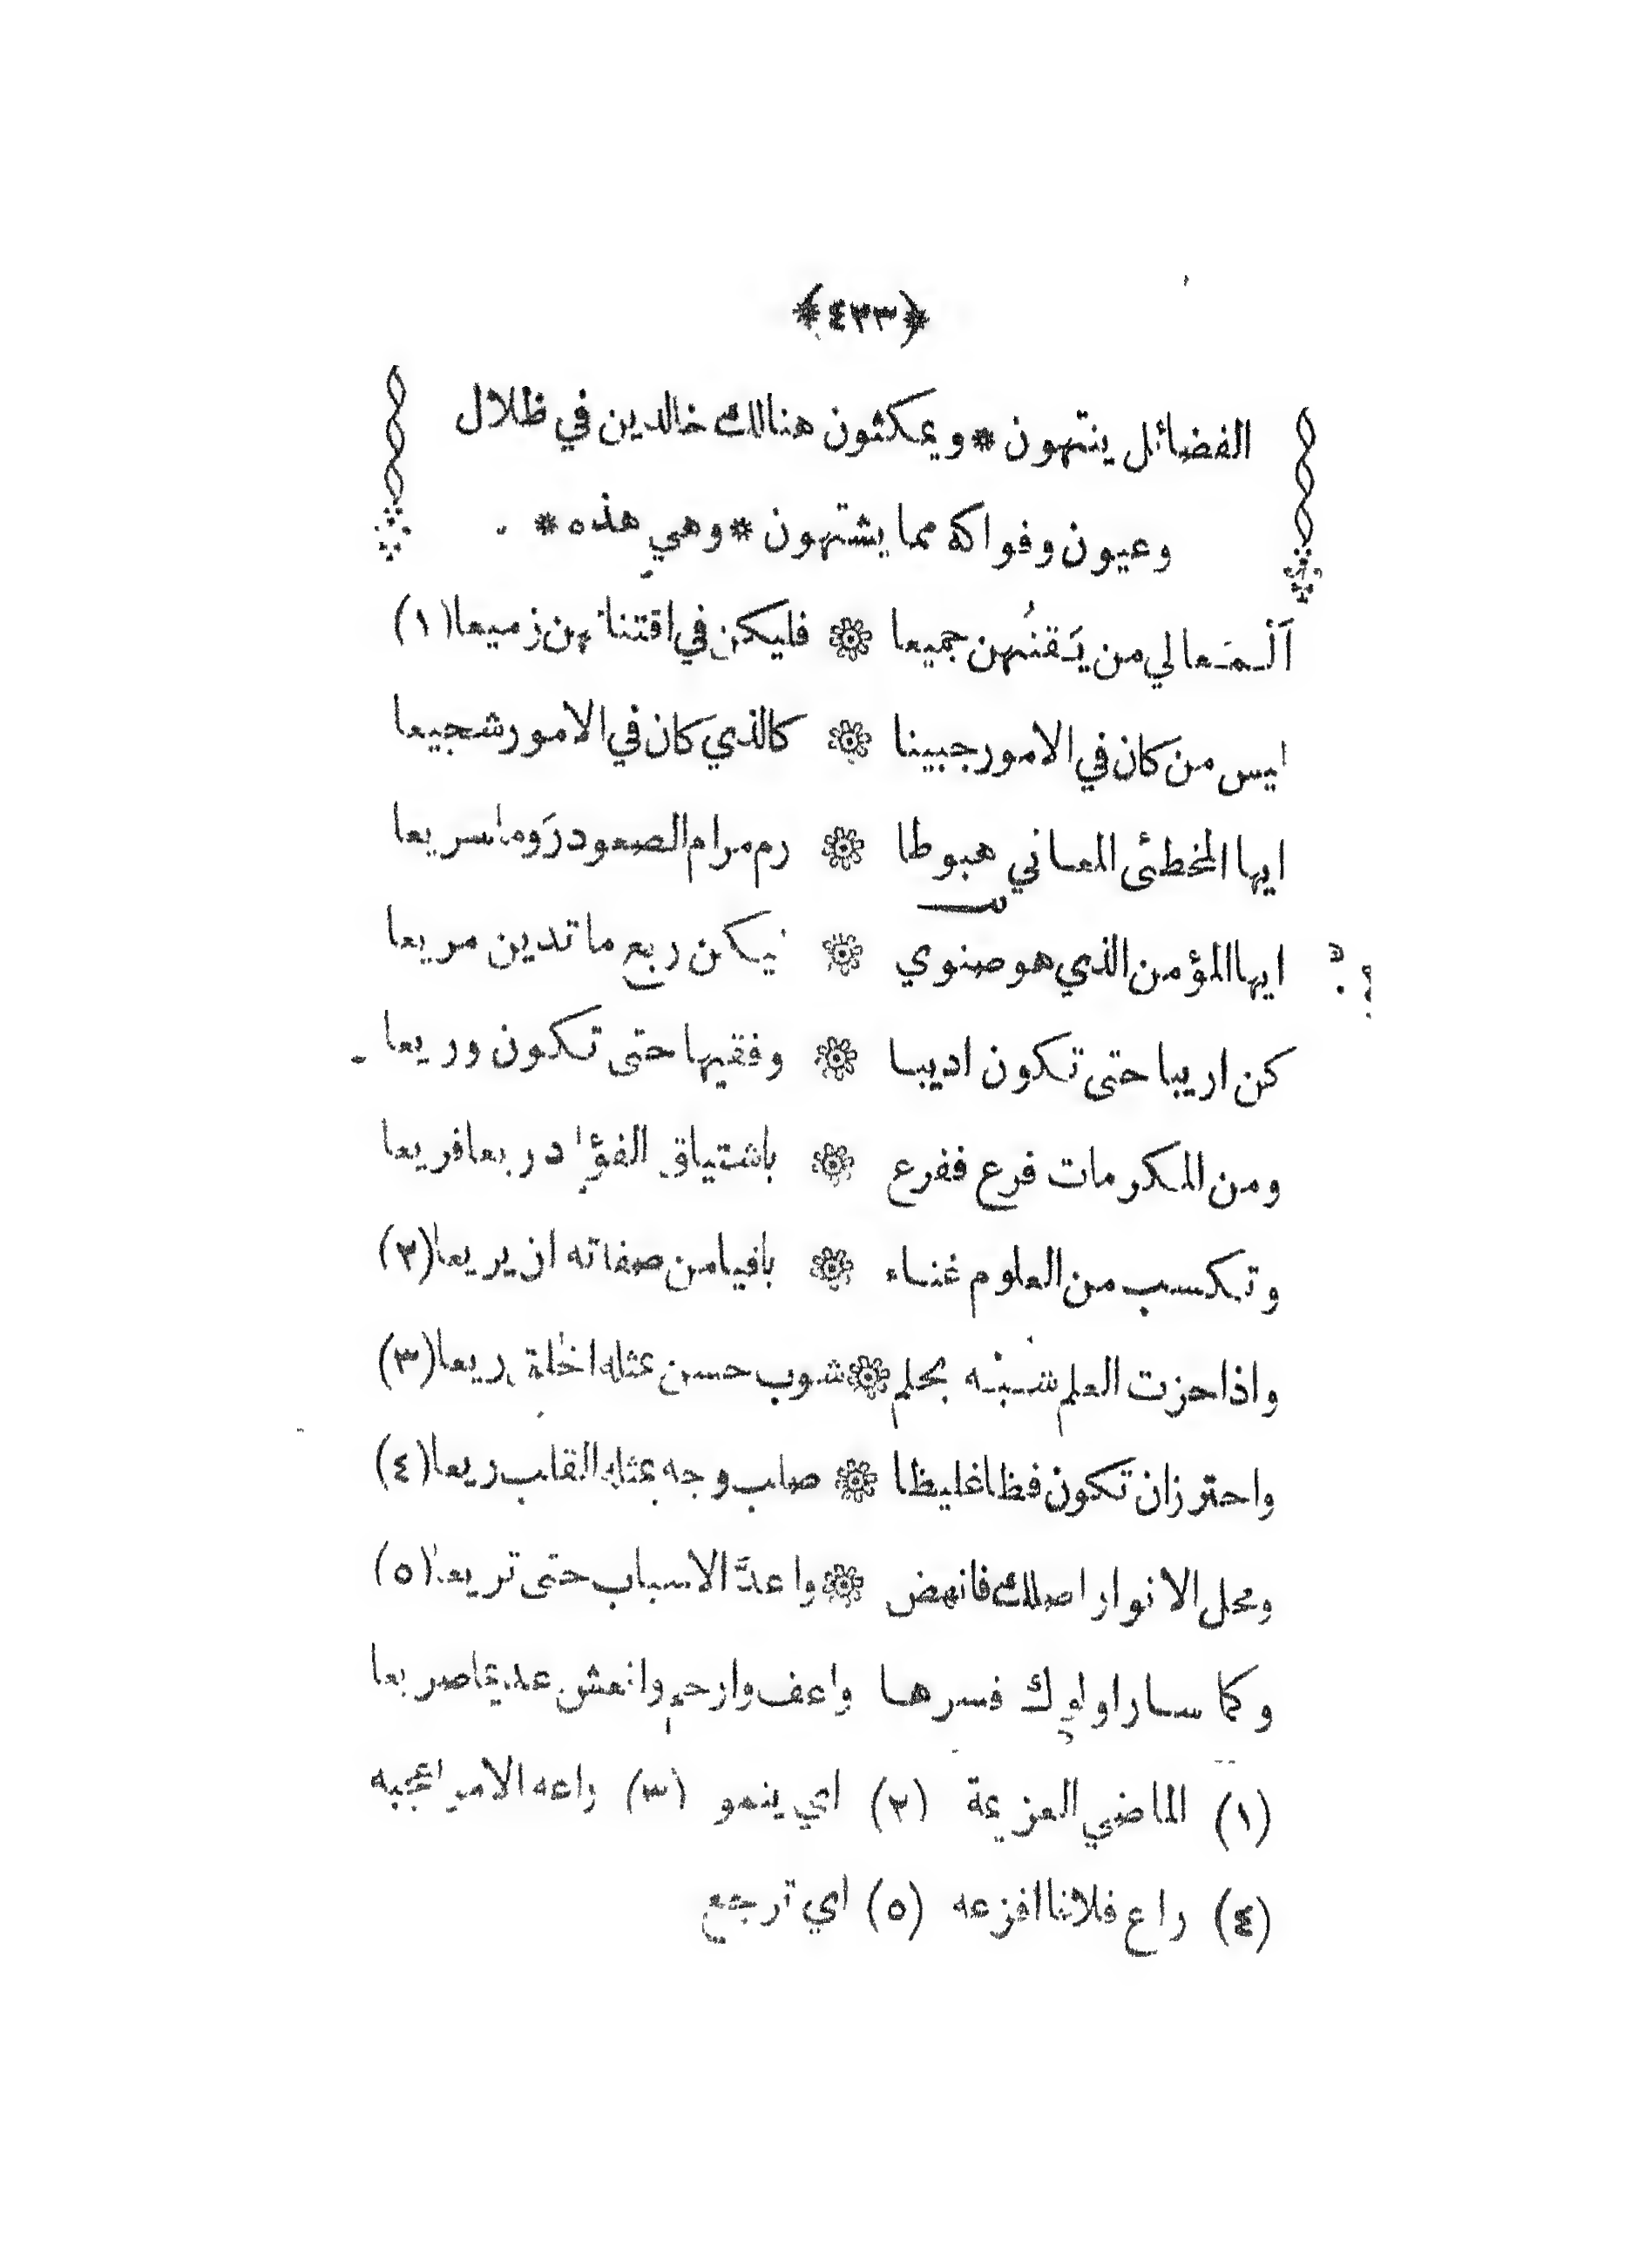 ﴿٤٣٣﴾
الفضائل ينتهون * ويمكثون هنالك خالدين في ظلال
وعيون وفواكه مما يشتهون * وهي هذه *
اَلْمَعالي من يَقنُهن جميعا ❁ فليكن في اقتنائهن زميعا (١)
ليس من كان في الامور جبينا ❁ كالذي كان في الامور شجيعا
ايها المخطئ المعاني هبوطا ❁ رم مرام الصعود رَوما سريعا
ايها المؤمن الذي هو صنوي ❁ ليكن ربع ما تدين مريعا
كن اريبا حتى تكون اديبا ❁ وفقيها حتى تكون وريعا
ومن المكرمات فرع ففرع ❁ باشتياق الفؤاد ربعا فريعا
وتكسب من العلوم غناء ❁ باقيا من صفاته ان يريعا (٢)
واذا حزت العلم شُبْه بحلم ❁ شوب حسن بمثله اخلة يريعا (٣)
واحترز ان تكون فظا غليظا ❁ صلب وجه بمثله القلب ريعا (٤)
ومحل الانوار اصلك فانهض ❁ واعدَّ الاسباب حتى تريعا (٥)
وكما سار اولوك فسرها واعف وارحم وانعش عديما صريعا
(١) الماضي العزيمة (٢) اي ينمو (٣) راعه الامر اعجبه
(٤) راع فلانا افزعه (٥) اي ترجع